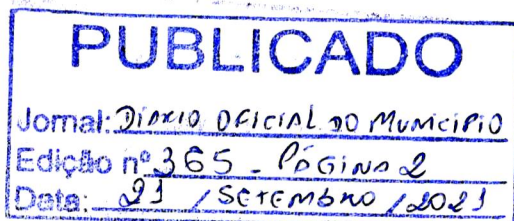 PUBLICADO
Jornal: DIÁRIO OFICIAL DO MUNICIPIO
Edição nº 365 - PÁGINA 2
Data: 21 / SETEMBRO / 2021